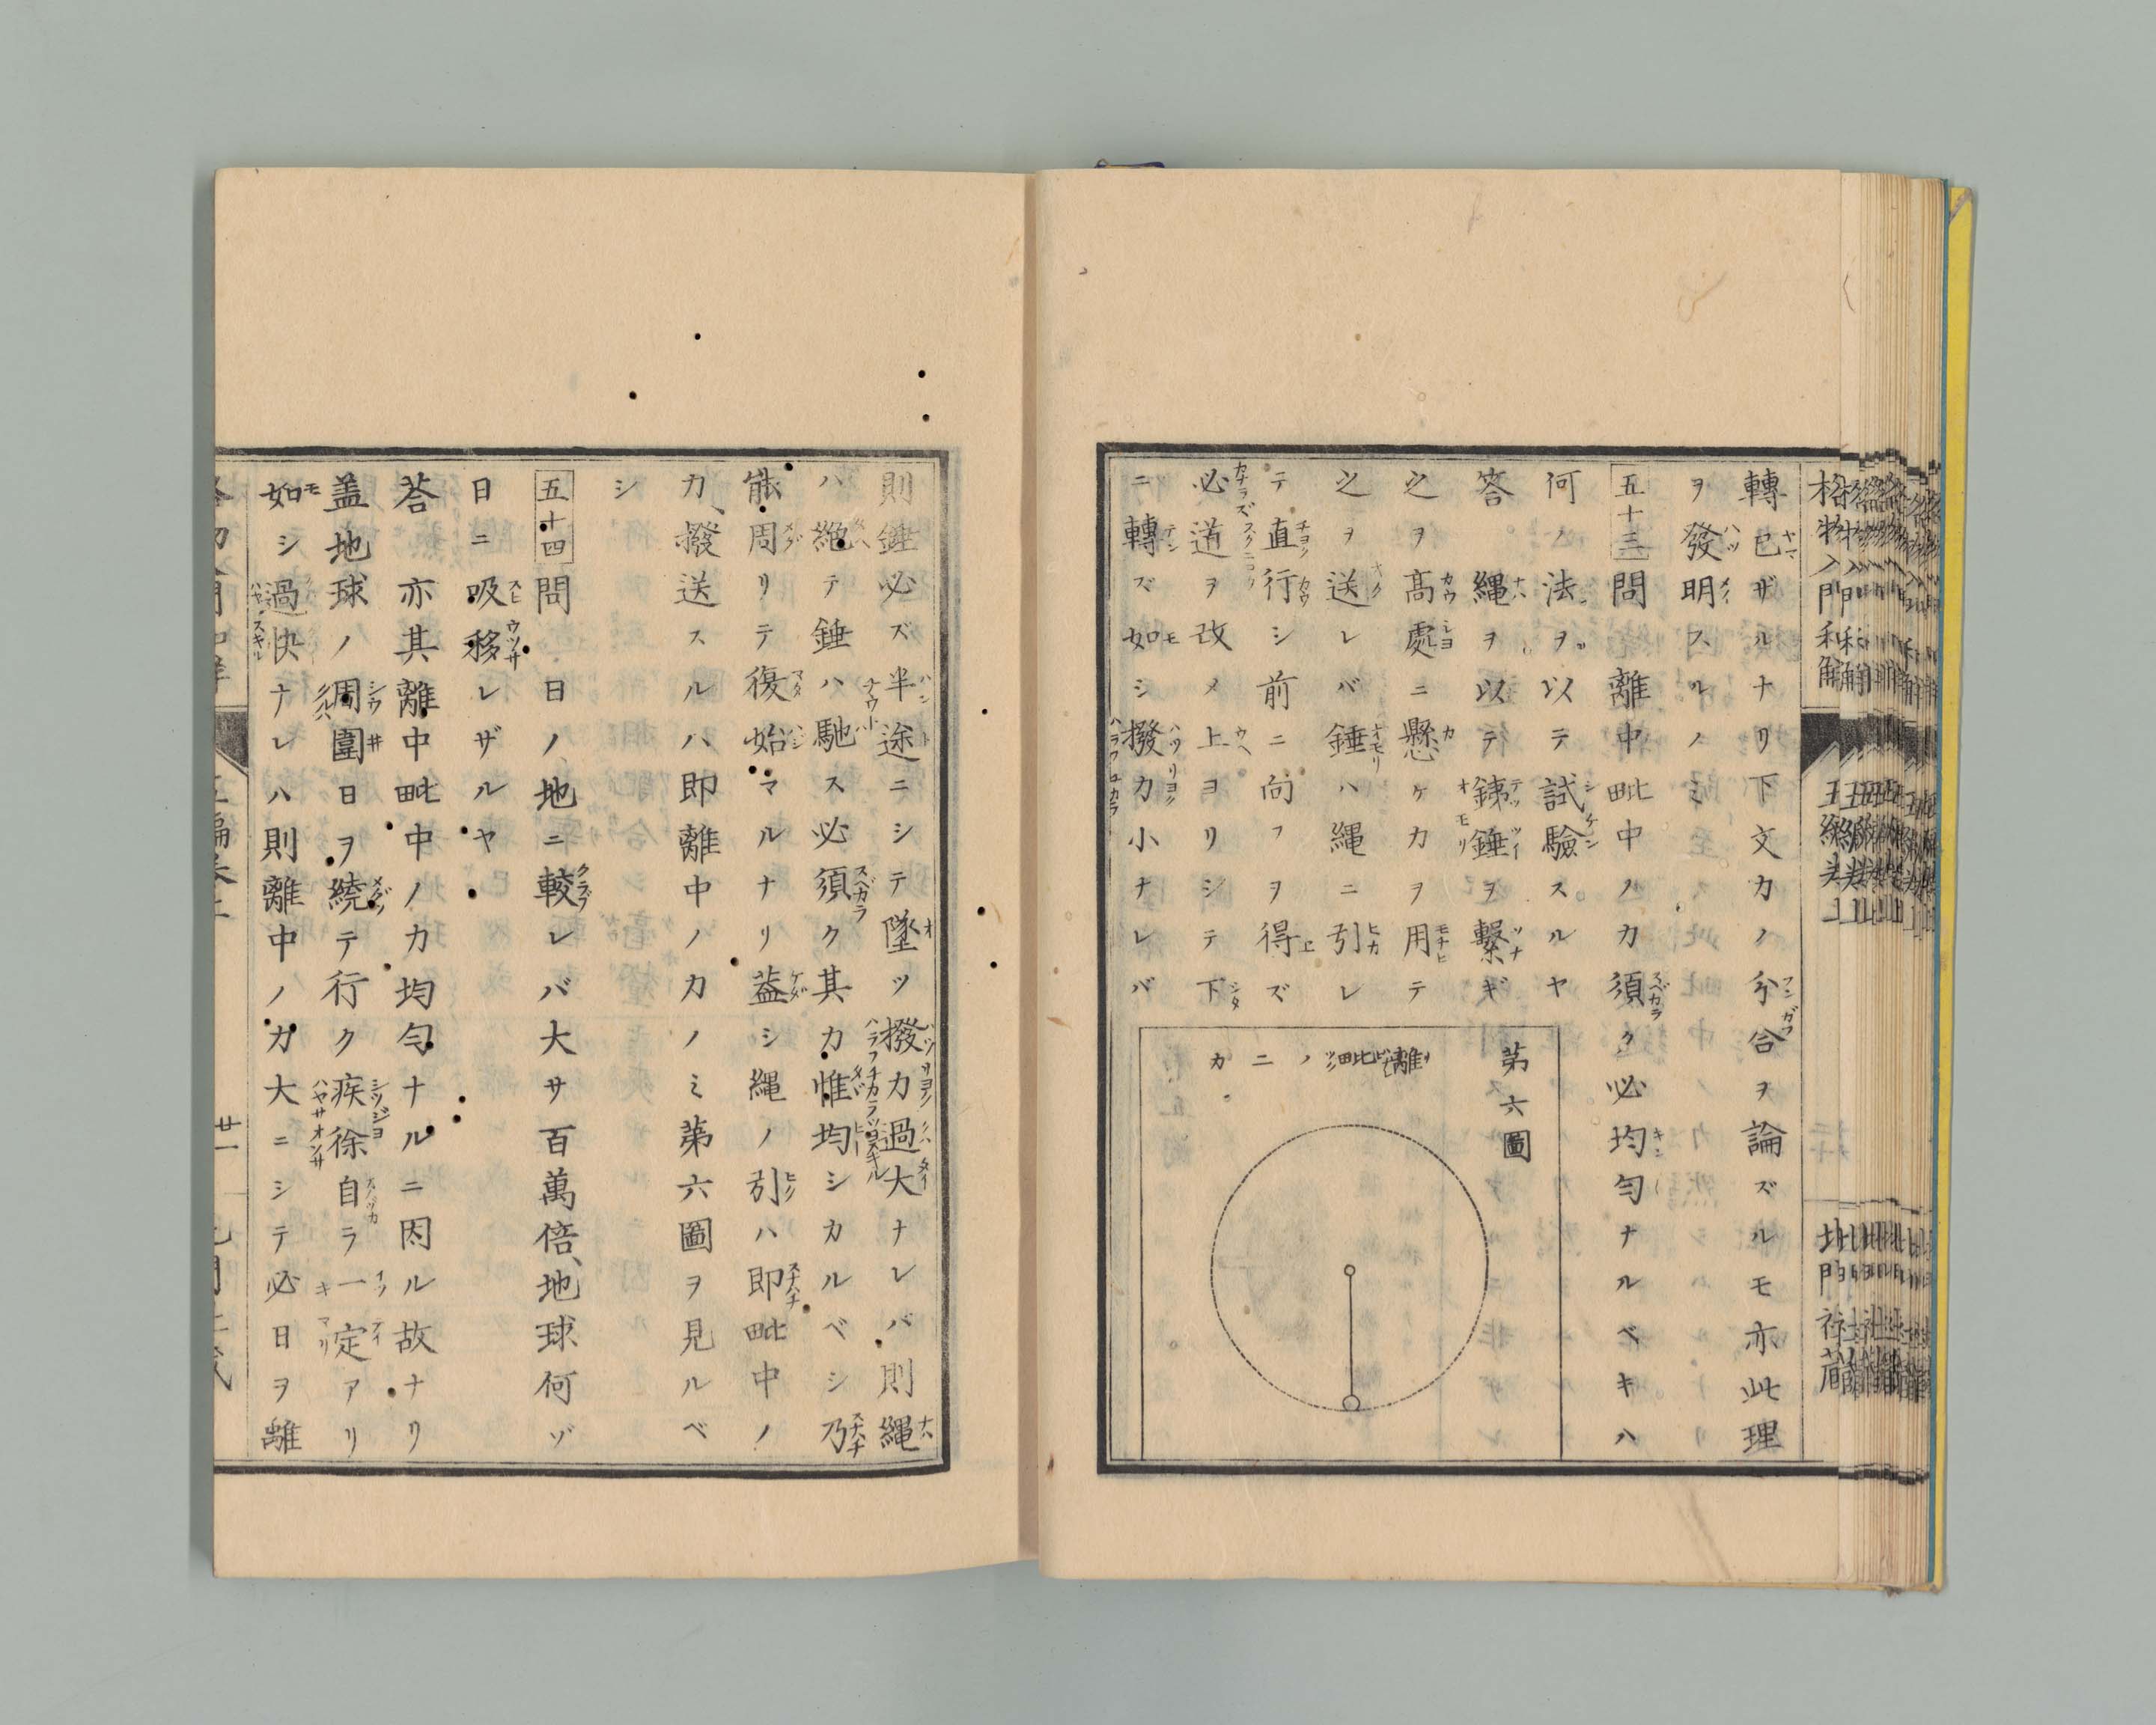 格物入門和解
五編巻上
北門社蔵
轉已ザルナリ下文力ノ分合ヲ論ズルモ亦此理
ヲ發明スルノミ
五十三 問離中毗中ノ力須ク必均勻ナルベキハ
何ノ法ヲ以テ試驗スルヤ
答縄ヲ以テ銕錘ヲ繋ギ
之ヲ髙處ニ懸ケ力ヲ用テ
之ヲ送レバ錘ハ縄ニ引レ
テ直行シ前ニ向フヲ得ズ
必道ヲ改メ上ヨリシテ下
ニ轉ズ如シ撥力小ナレバ
第六圖
離毗ノ二力
則錘必ズ半途ニシテ墜ツ撥力過大ナレバ則縄
ハ絶テ錘ハ馳ス必須ク其力惟均シカルベシ乃
能周リテ復始マルナリ葢シ縄ノ引ハ即毗中ノ
力撥送スルハ即離中ノ力ノミ第六圖ヲ見ルベ
シ
五十四 問日ノ地ニ較レバ大サ百萬倍、地球何ゾ
日ニ吸移レザルヤ
荅亦其離中毗中ノ力均勻ナルニ因ル故ナリ
盖地球ノ周圍日ヲ繞テ行ク疾徐自ラ一定アリ
如シ過快ナレハ則離中ノ力大ニシテ必日ヲ離
廿一